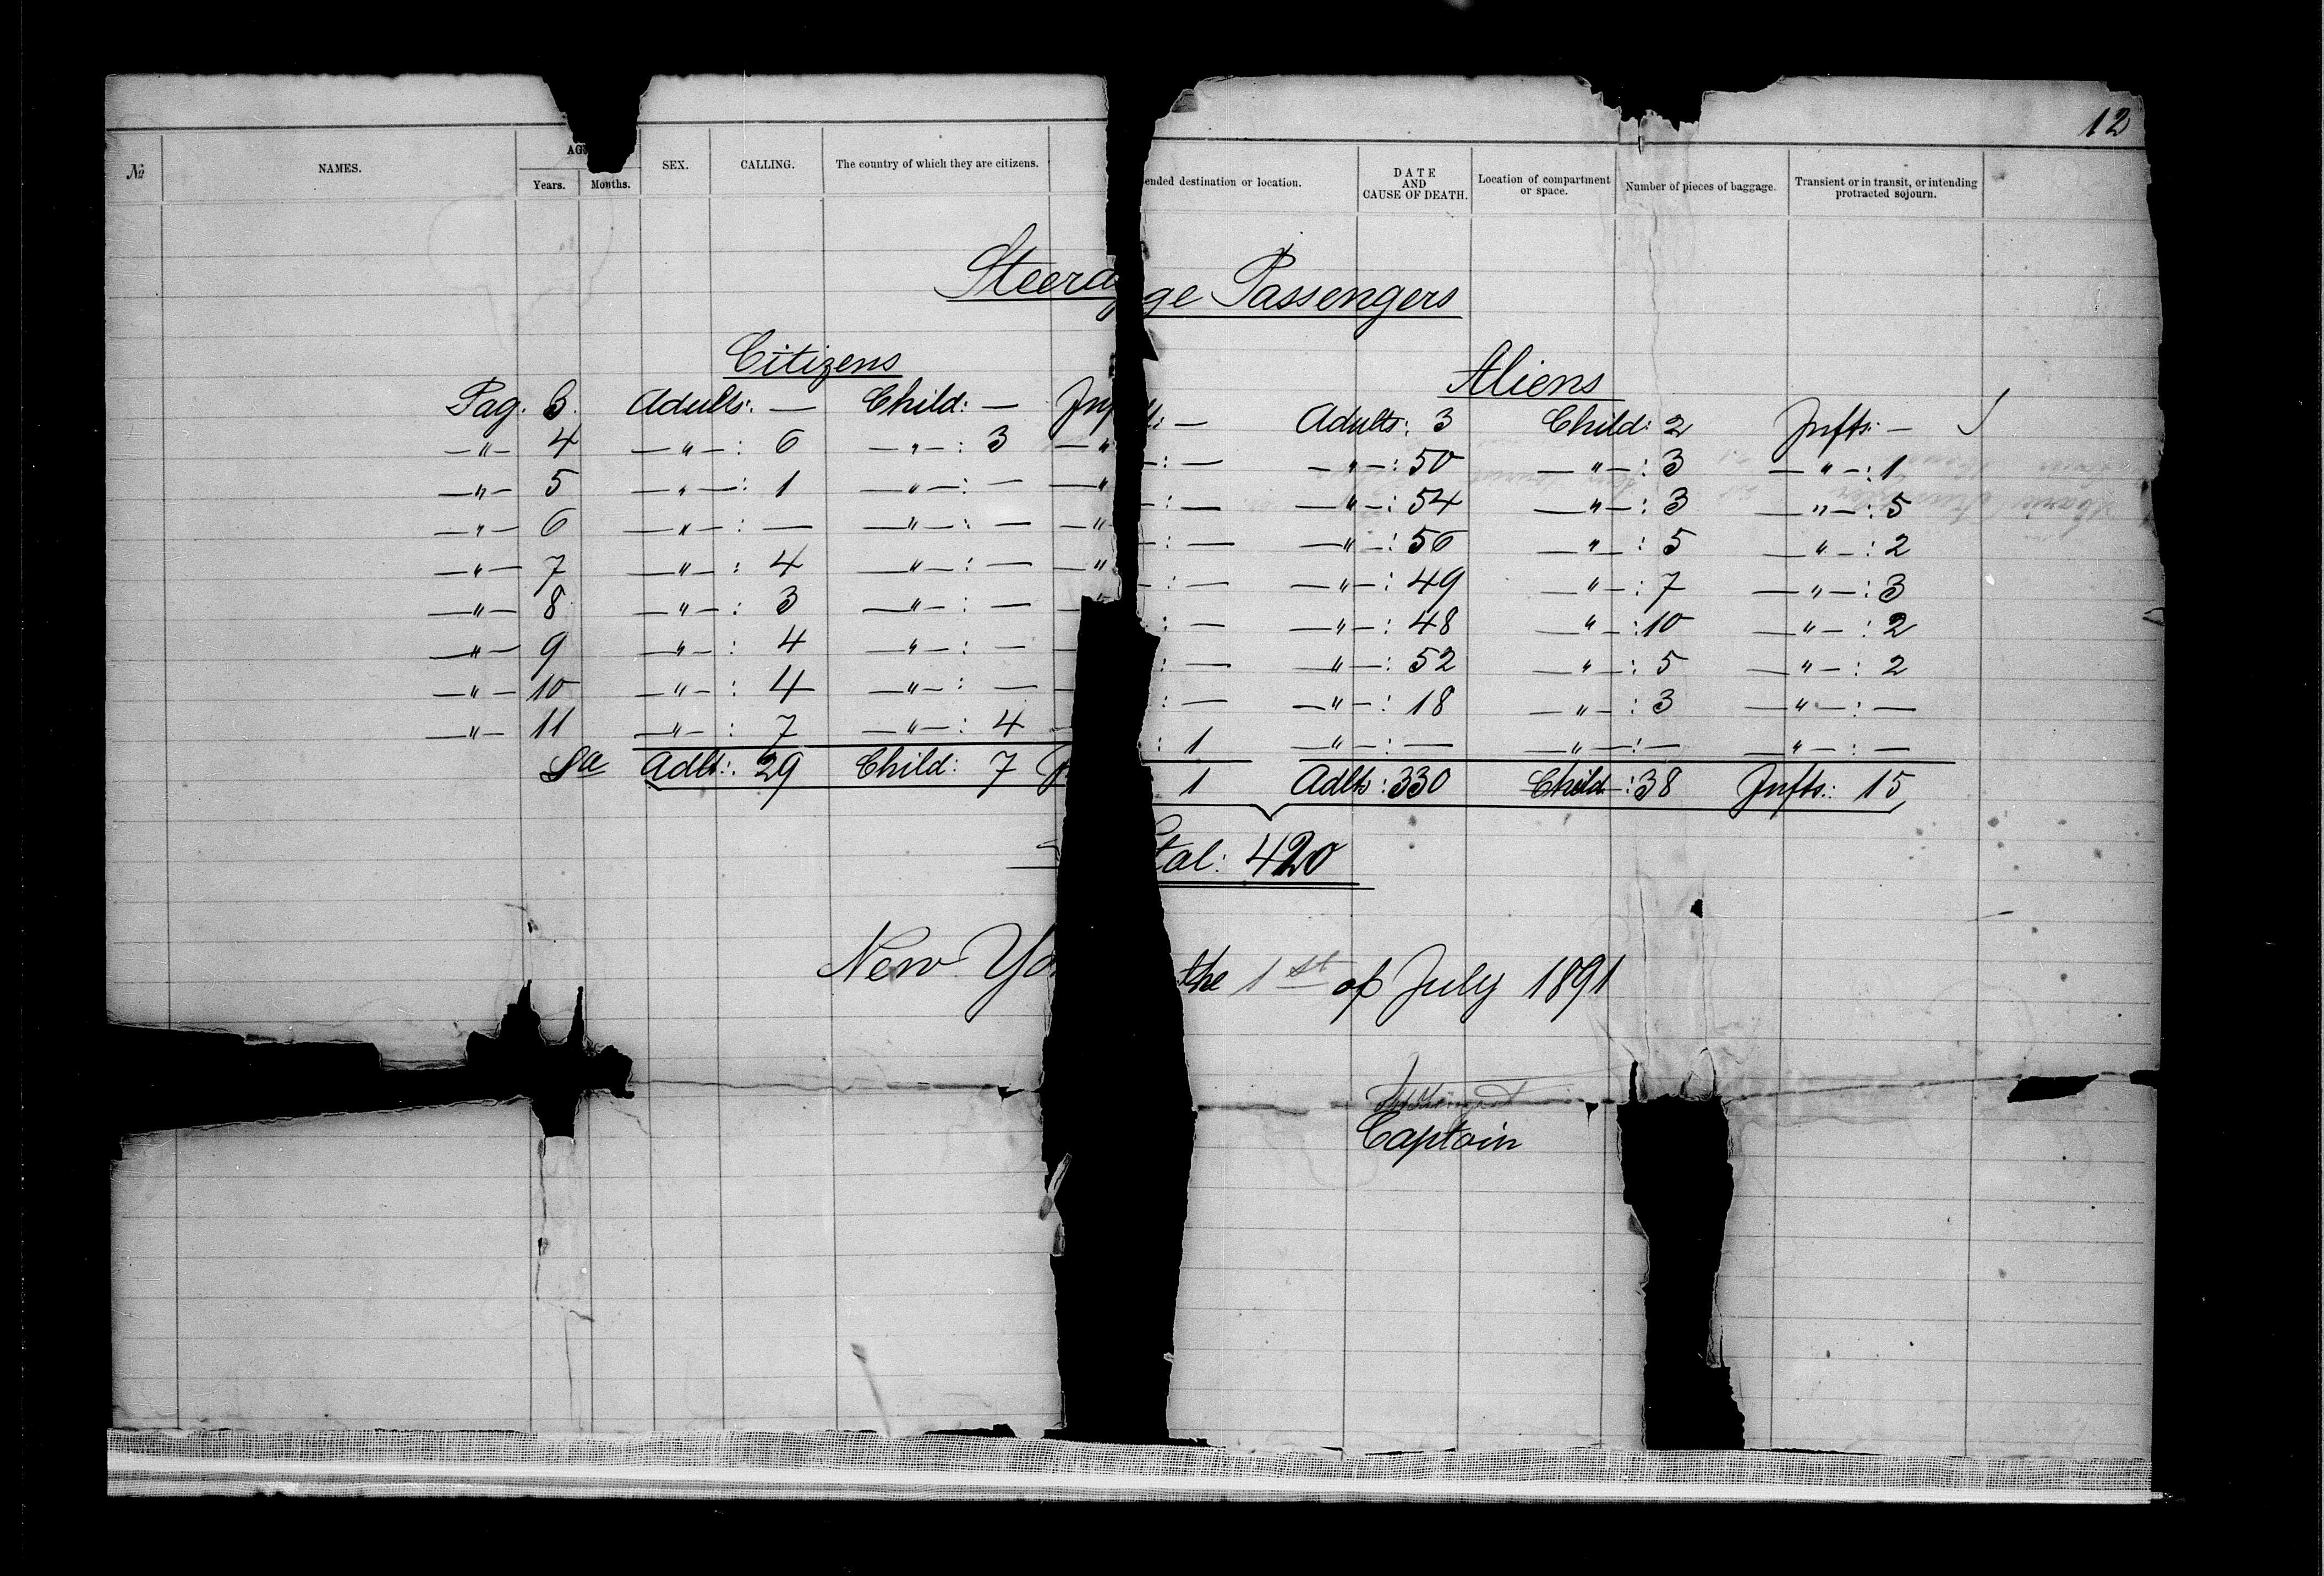 12
№ NAMES. AG Years. Months. SEX. CALLING. The country of which they are citizens. ended destination or location. DATE AND CAUSE OF DEATH. Location of compartment or space. Number of pieces of baggage. Transient or in transit, or intending protracted sojourn.
Steerage Passengers
Citizens Aliens
Pag. 3. Adults: — Child: — Inf ts: — Adults: 3 Child: 2 Infts: —
—"— 4 —"—: 6 —"—: 3 —" —: — —"—: 50 —"—: 3 —"—: 1
—"— 5 —"—: 1 —"—: — —" —: — —"—: 54 —"—: 3 —"—: 5
—"— 6 —"—: — —"—: — —" —: — —"—: 56 —"—: 5 —"—: 2
—"— 7 —"—: 4 —"—: — —" —: — —"—: 49 —"—: 7 —"—: 3
—"— 8 —"—: 3 —"—: — —" : — —"—: 48 —"—: 10 —"—: 2
—"— 9 —"—: 4 —"—: — — : — —"—: 52 —"—: 5 —"—: 2
—"— 10 —"—: 4 —"—: — — : — —"—: 18 —"—: 3 —"—: —
—"— 11 —"—: 7 —"—: 4 — : 1 —"—: — —"—: — —"—: —
Sa Adlt: 29 Child: 7 1 Adlts: 330 Child: 38 Infts: 15
tal: 420
New Yo the 1st of July 1891
Captain